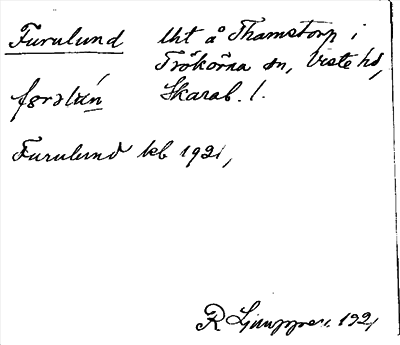 Furulund lht å Thamstorp i
Tråkörna sn, Viste hd,
Skarab. l.
Furulund kb 1921,
R Ljunggren 1921